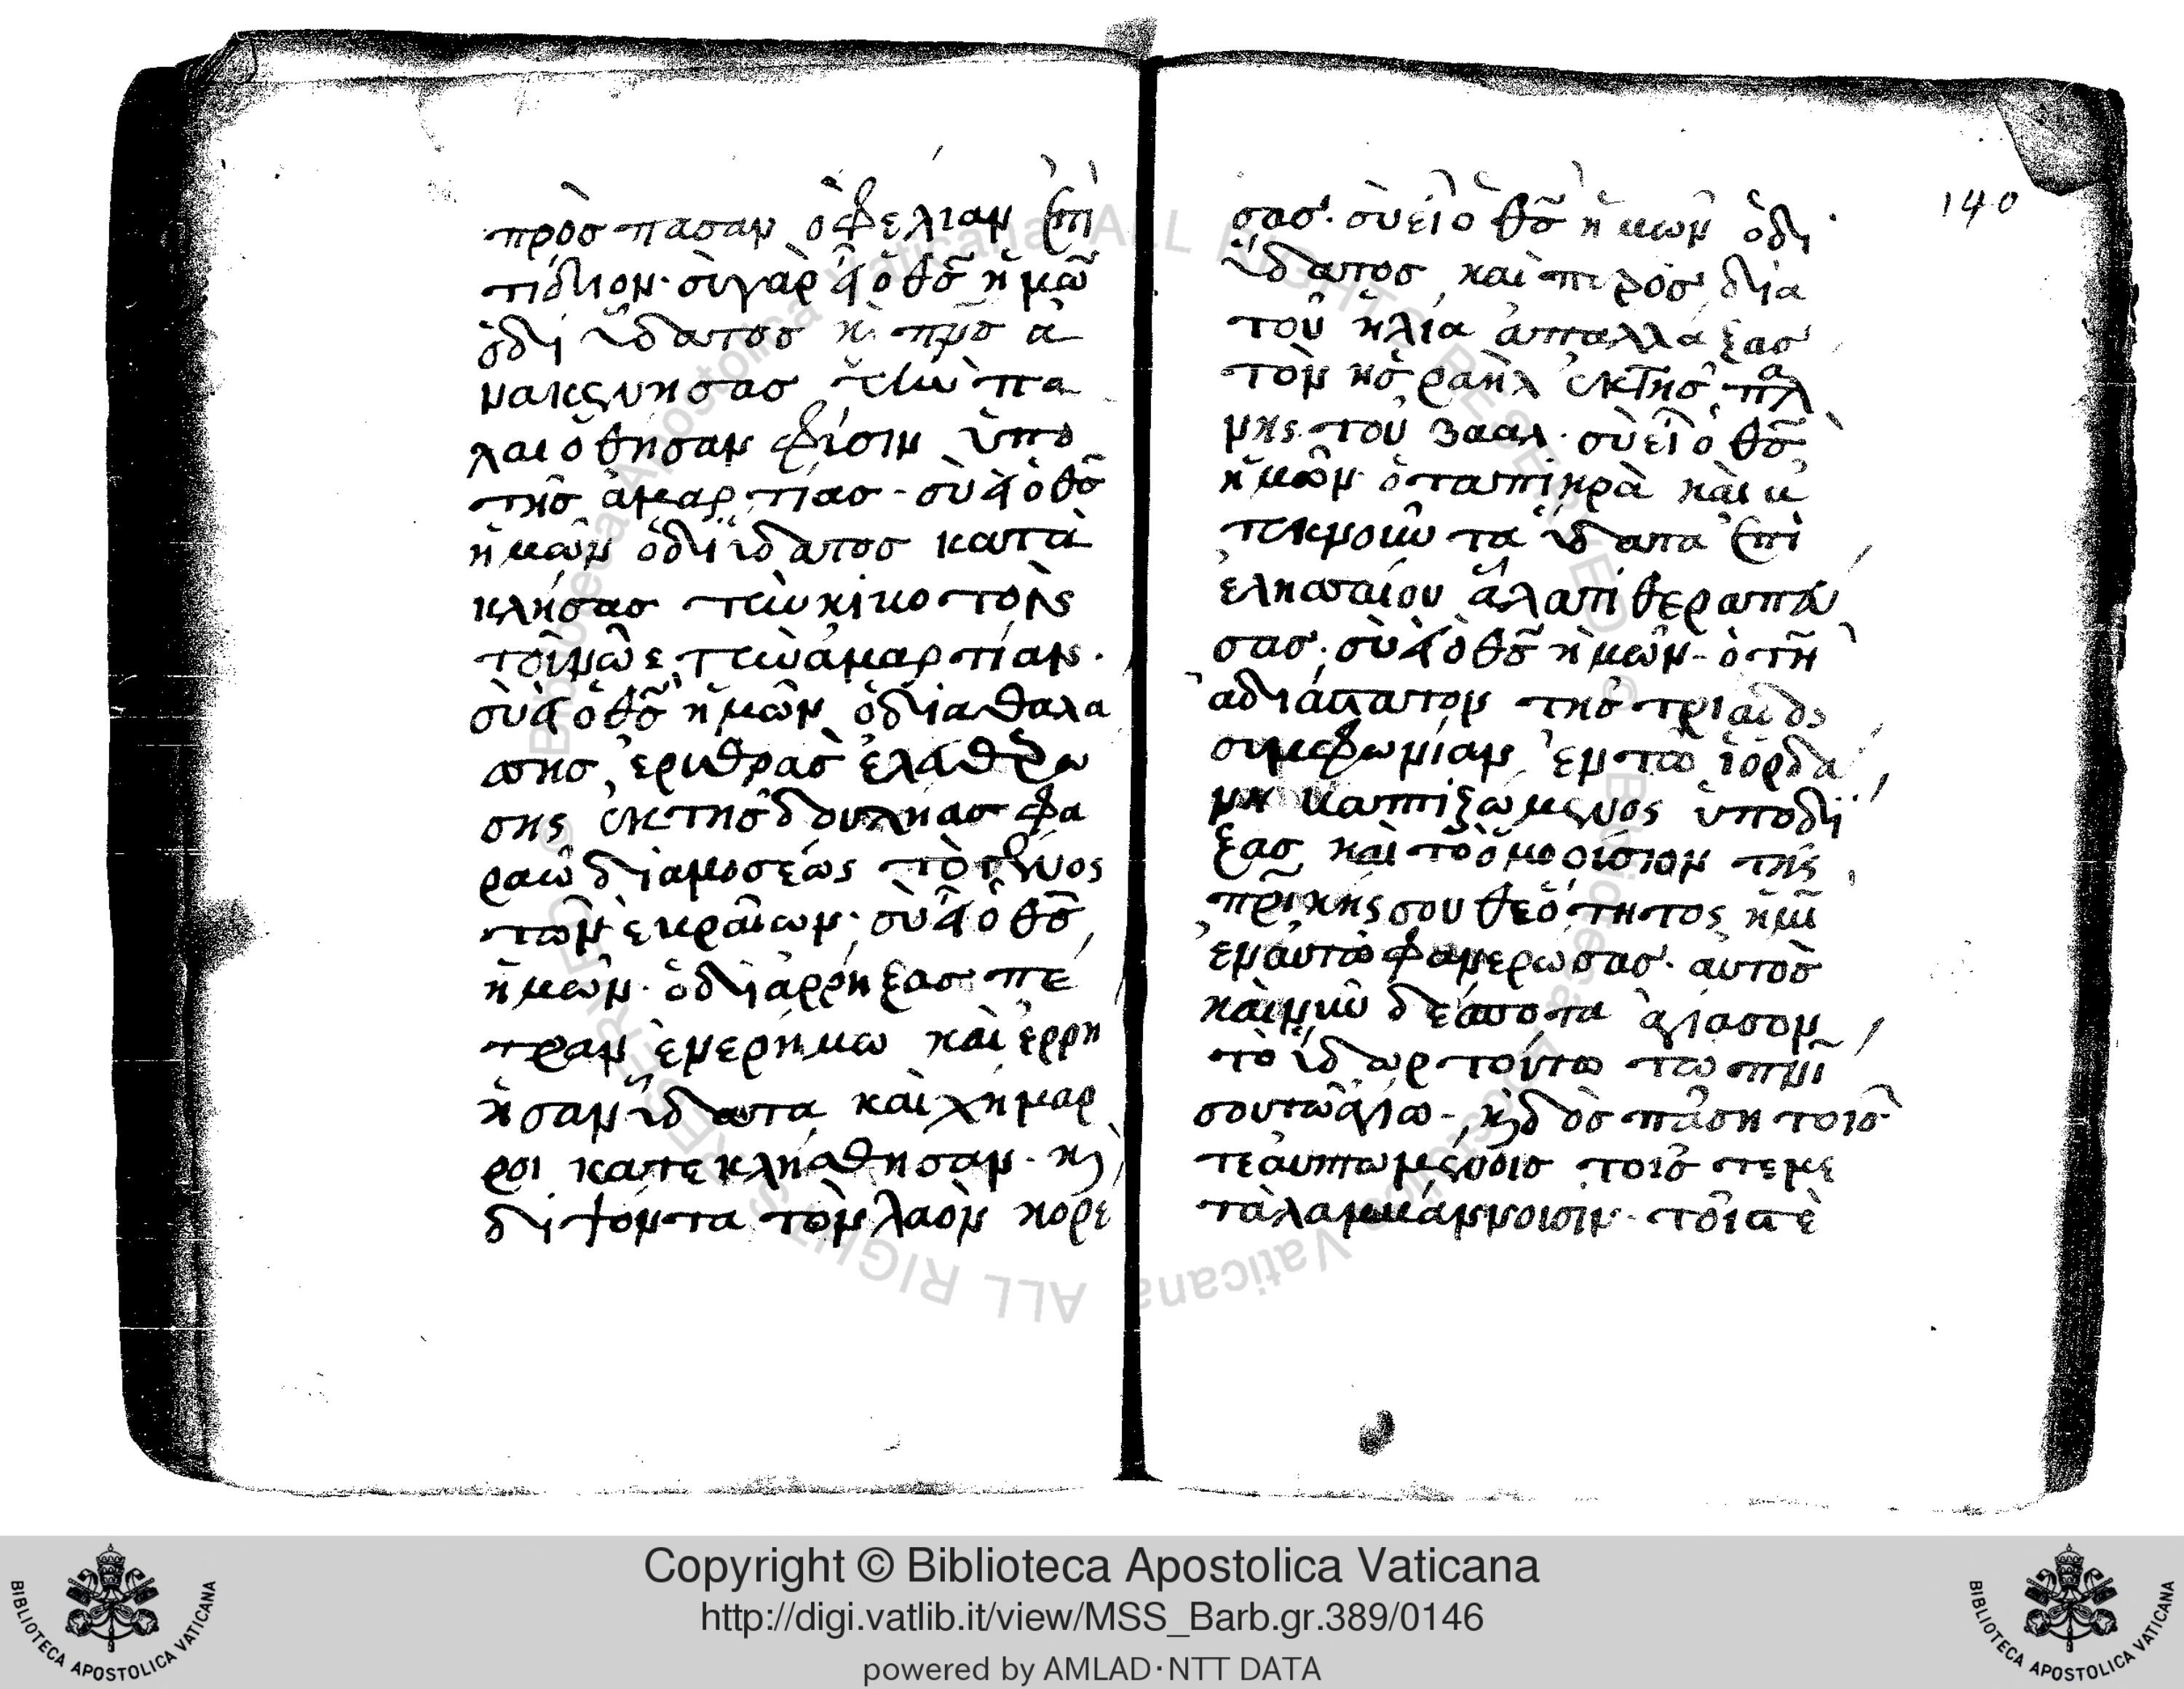 πρὸσ πασαν ὀφελιαν ἐπι
τιδιον· σὺ γὰρ εἶ ὁ θσ ἡμῶ
ὁ δι ὕδατοσ κ̀ πνσ ἀ
νακενησασ τὴν πα
λαιοθησαν φύσιν ὑπο
τῆσ ἁμαρτίασ· σὺ εἶ ὁ θσ
ἡμῶν ὁ δι ὕδατοσ κατὰ
κλήσασ
τοῦ νῶε τὴν ἁμαρτίαν·
σὺ εἶ ὁ θσ ἡμῶν ὁ δια θαλα
σσησ ἐρυθρασ ἐλευθερω
σης ἐκ τησ δουλήασ φα
ραῶ δια μοσέως τὸ γένος
τῶν ἑυραίων· σὺ εἶ ὁ θσ
ἡμῶν· ὁ διαρρήξασ πέ
τραν ἐν ερήμω καὶ ἐρρη
ησαν ὕδατα καὶ χήμαρ
ροι κατεκλήσθησαν· κ̀
διψόντα τὸν λαὸν κορε
σασ· σὺ εἶ ὁ θσ ἡμῶν ὁ δι
ὕδατοσ καὶ πυρόσ δια
τοῦ ἠλία ἀπαλλάξασ
τὸν ησραὴλ ἐκ τῆσ πλα
νης του βααλ· σὺ εἶ ὁ θσ
ἡμῶν ὁ τα πικρὰ καὶ ἀ
τεκνοῦν τα ὕδατα ἐπὶ
ἐλησσαίου ἅλατι θεραπεύ
σασ· σὺ εἶ ὁ θσ ἡμῶν· ὁ τὴ
αδιάστατον τησ τριάδος
συμφωνίαν ἐν τῶ ἰορδα
νη βαπτιζώμενος ὑποδή
ξασ καὶ τὸ ὁμοούσιον τῆς
πρικής σου θεότητος ἡμῖ
ἐν αὐτῶ φανερωσασ· αὐτοσ
καὶ νῦν δέσποτα ἁγίασον
τὸ ὕδωρ τούτο τῶ πνι
σου τῶ ἁγίω· κ̀ δὸσ πάση τοισ
τε ἁπτωμένοισ τοισ τε με
ταλαμβάννοισιν· τοῖσ τε
140
Copyright © Biblioteca Apostolica Vaticana
http://digi.vatlib.it/view/MSS_Barb.gr.389/0146
powered by AMLAD·NTT DATA
BIBLIOTECA APOSTOLICA VATICANA
BIBLIOTECA APOSTOLICA VATICANA